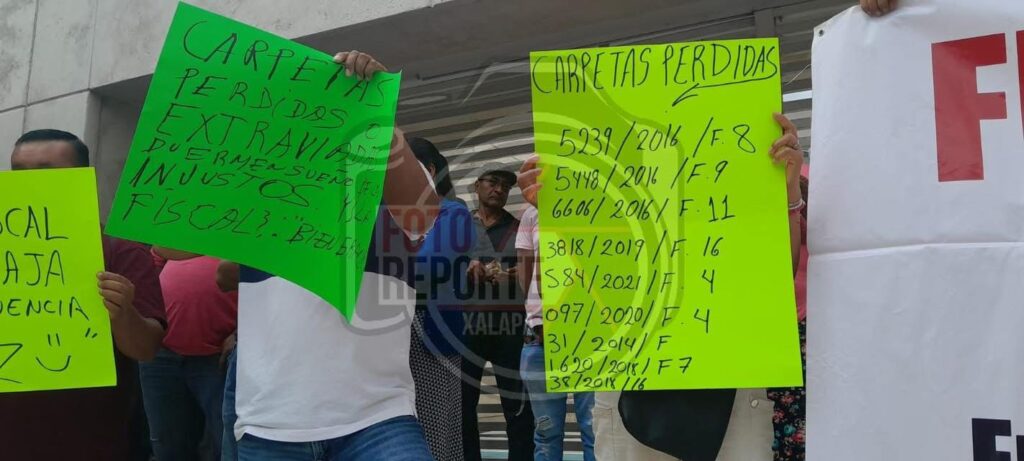 FISCAL
AJA
UENCIA
Z
CARPETAS
PERDIDAS O
EXTRAVIADA
DUERMEN SUEÑO
INJUSTOS
FISCAL?...
CARPETAS PERDIDAS
5239/2016/F.8
5448/2016/F.9
6606/2016/F.11
3818/2019/F.16
584/2021/F.4
097/2020/F.4
31/2014/F
1620/2018/F7
38/2018/16
F
F
FOTO
REPORTE
XALAPA